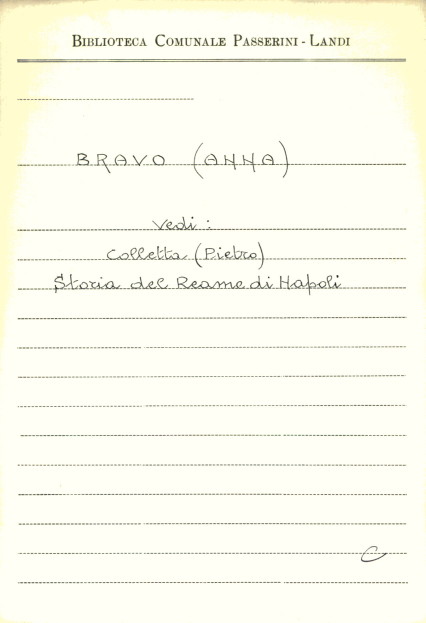 BIBLIOTECA COMUNALE PASSERINI - LANDI
BRAVO (ANNA)
Vedi :
Colletta (Pietro)
Storia del Reame di Napoli
C